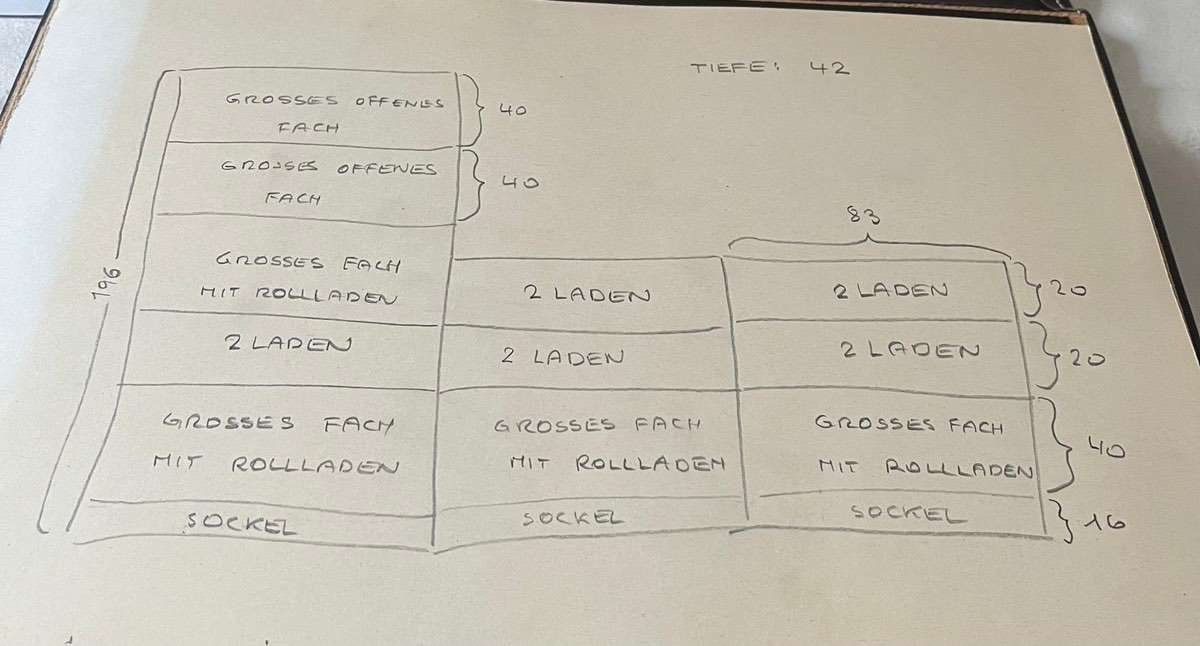 TIEFE: 42
GROSSES OFFENES
FACH
40
GROSSES OFFENES
FACH
40
83
196
GROSSES FACH
MIT ROLLLADEN
2 LADEN
2 LADEN
20
2 LADEN
2 LADEN
2 LADEN
20
GROSSES FACH
MIT ROLLLADEN
GROSSES FACH
MIT ROLLLADEN
GROSSES FACH
MIT ROLLLADEN
40
SOCKEL
SOCKEL
SOCKEL
16